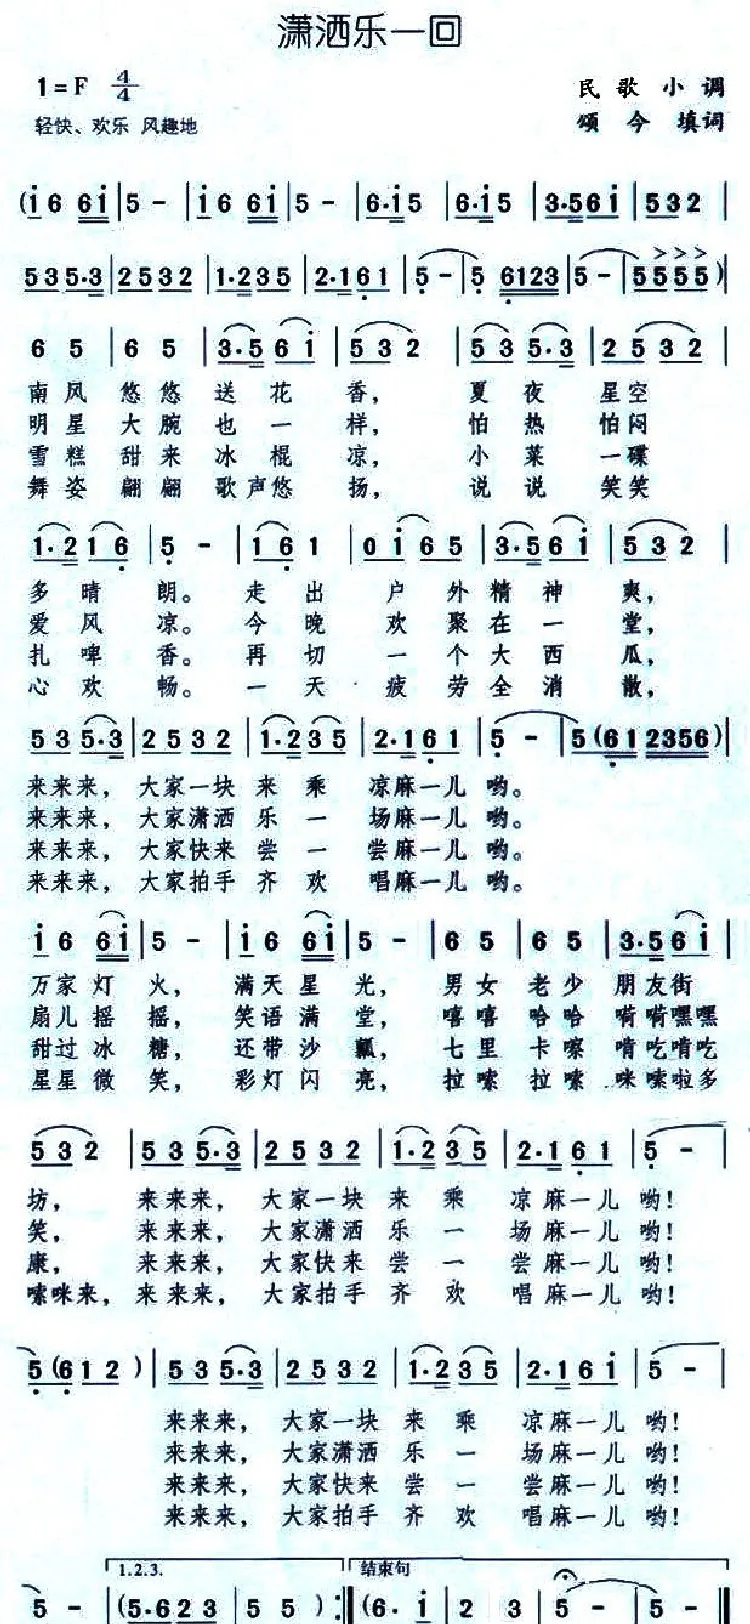 潇洒乐一回
1=F 4/4 民歌小调
轻快、欢乐 风趣地 颂今 填词
(i6 6i|5 -|i6 6i|5 -|6·i5|6·i5|3·56i|532|
535·3|2532|1·235|2·161|5 -|5 6123|5 -|5555)|
6 5|6 5|3·56i|532|535·3|2532|
南风 悠悠 送花 香， 夏夜 星空
明星 大腕 也一 样， 怕热 怕闷
雪糕 甜来 冰棍 凉， 小菜 一碟
舞姿 翩翩 歌声悠 扬， 说说 笑笑
1·216|5 -|161|0i65|3·56i|532|
多晴 朗。 走出 户外 精神 爽，
爱风 凉。 今晚 欢聚 在一 堂，
扎啤 香。 再切 一个 大西 瓜，
心欢 畅。 一天 疲劳 全消 散，
535·3|2532|1·235|2·161|5 -|5(612356)|
来来来， 大家一块 来乘 凉麻一儿 哟。
来来来， 大家潇洒 乐一 场麻一儿 哟。
来来来， 大家快来 尝一 尝麻一儿 哟。
来来来， 大家拍手 齐欢 唱麻一儿 哟。
i6 6i|5 -|i6 6i|5 -|65|65|3·56i|
万家灯 火， 满天星 光， 男女 老少 朋友街
扇儿摇 摇， 笑语满 堂， 嘻嘻 哈哈 嗬嗬嘿嘿
甜过冰 糖， 还带沙 瓤， 七里 卡嚓 啃吃啃吃
星星微 笑， 彩灯闪 亮， 拉嗦 拉嗦 咪嗦啦多
532|535·3|2532|1·235|2·161|5 -|
坊， 来来来， 大家一块 来乘 凉麻一儿 哟！
笑， 来来来， 大家潇洒 乐一 场麻一儿 哟！
康， 来来来， 大家快来 尝一 尝麻一儿 哟！
嗦咪来， 来来来， 大家拍手 齐欢 唱麻一儿 哟！
5(612)|535·3|2532|1·235|2·16i|5 -|
来来来， 大家一块 来乘 凉麻一儿 哟！
来来来， 大家潇洒 乐一 场麻一儿 哟！
来来来， 大家快来 尝一 尝麻一儿 哟！
来来来， 大家拍手 齐欢 唱麻一儿 哟！
1.2.3. 结束句
5 -|(5·623|55):‖(6·i|23|5 -|5 -)‖